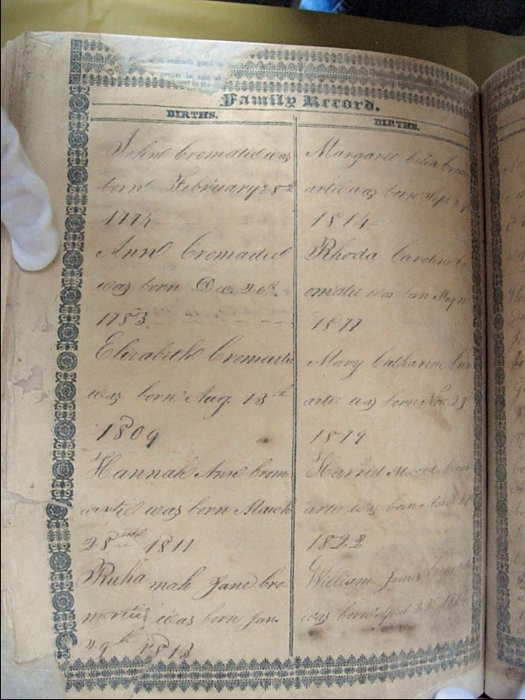 Family Record.
BIRTHS.
John Cromartie was
born February 28th
1774
Ann Cromartie
was born Dec 20th
1783
Elizabeth Cromartie
was born Aug 18th
1809
Hannah Ann Crom
artie was born March
28 1811
Ruha mah Jane Cro
martie was born Jan.
29th 1813
BIRTHS.
Margaret Crom
artie was born Sept
181
Rhoda Caroline Cr
omatie was born May
1817
Mary Catharine Crom
artie was born Nov. 29
1819
Harriet Crom
artie was born
1822
William James
was born April